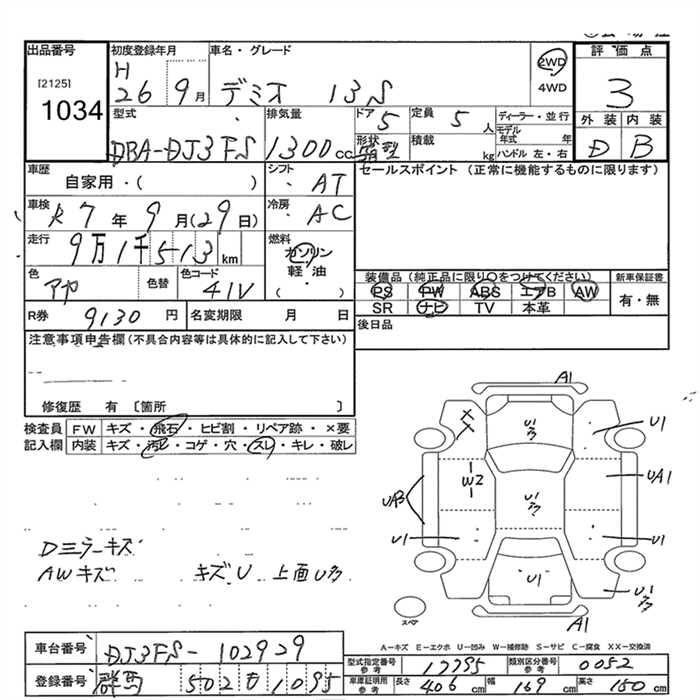 出品番号
[2125]
1034
初度登録年月
H
26 9月
車名・グレード
デミオ 13S
2WD
4WD
評価点
3
外装 内装
D B
型式
DBA-DJ3FS
排気量
1300cc
ドア 5
形状 箱型
定員 5人
積載 kg
ディーラー・並行
モデル年式 年
ハンドル 左・右
車歴
自家用・( )
シフト
AT
セールスポイント (正常に機能するものに限ります)
車検
R7年9月(29日)
冷房
AC
走行
9万1千513km
燃料
ガソリン
軽・油
( )
色
アヤ
色替
色コード
41V
装備品 (純正品に限り○をつけてください)
PS PW ABS エアB AW
SR ナビ TV 本革
新車保証書
有・無
R券 9130円
名変期限 月 日
後日品
注意事項申告欄(不具合内容等は具体的に記入して下さい)
修復歴 有 〔箇所 〕
検査員 FW キズ・飛石・ヒビ割・リペア跡・×要
記入欄 内装 キズ・汚レ・コゲ・穴・スレ・キレ・破レ
Dミラーキズ
AWキズ キズU 上面U多
A1
U1
多
U1
W2
U1
多
UA1
UA3
U1
U1
U1
U1
多
A1
スペア
A-キズ E-エクボ U-凹み W-補修跡 S-サビ C-腐食 XX-交換済
車台番号 DJ3FS-102929
登録番号 群馬 502 も 1095
型式指定番号 参考 17795
類別区分番号 参考 0052
車庫証明用 参考 長さ 406cm 幅 169cm 高さ 150cm